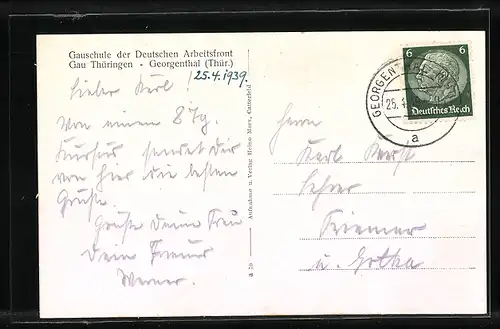 Gauschule der Deutschen Arbeitsfront
Gau Thüringen - Georgenthal (Thür.)
25.4.1939.
Lieber Karl!
Von einem 8 Tg.
Kursus sendet Dir
von hier die besten
Grüße.
Grüße Deine Frau
Dein Freund
Werner.
Aufnahme u. Verlag Heino Marx, Catterfeld
a 20
6 6
Deutsches Reich
GEORGENT
25. 4
a
Herrn
Karl
Lehrer
Friemar
u. Gotha